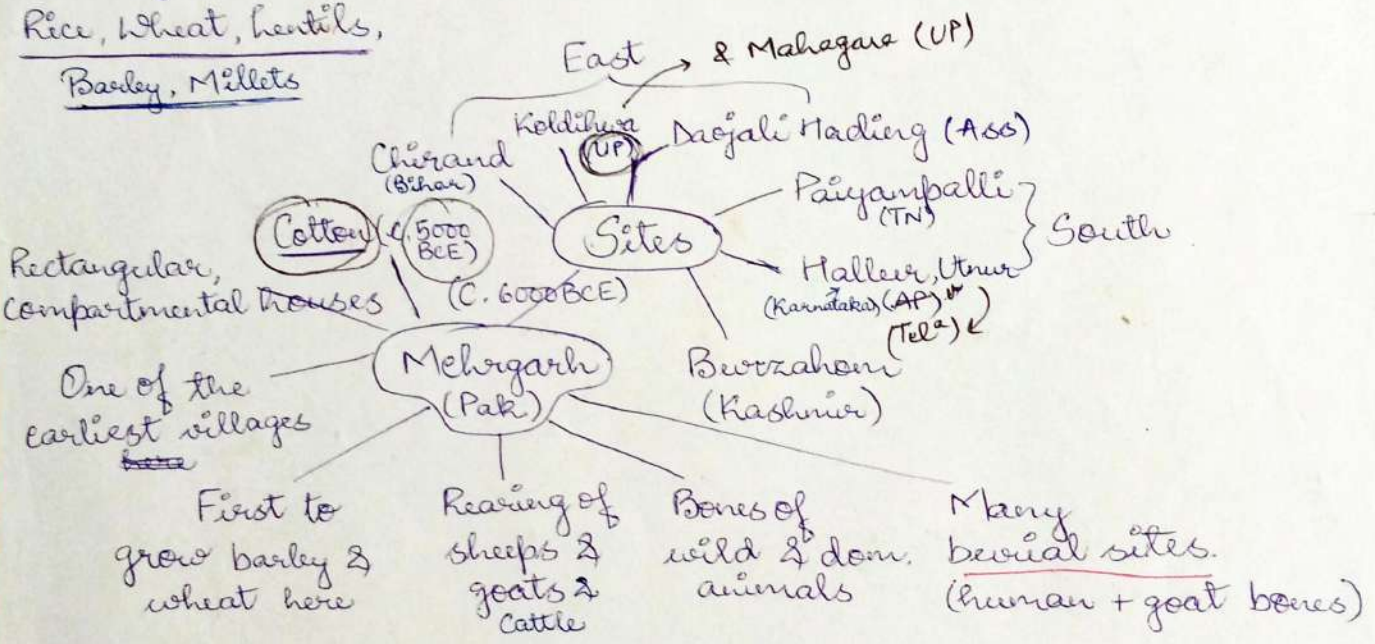 Rice, Wheat, Lentils,
Barley, Millets
East
& Mahagara (UP)
Koldihwa
(UP)
Chirand
(Bihar)
Daojali Hading (Ass)
Paiyampalli
(TN)
Sites
South
Hallur, Utnur
(Karnataka) (AP)
(Tel a)
Burzahom
(Kashmir)
Cotton (c. 5000
BCE)
(C. 6000 BCE)
Rectangular,
compartmental houses
Mehrgarh
(Pak)
One of the
earliest villages
here
First to
grow barley &
wheat here
Rearing of
sheeps &
goats &
Cattle
Bones of
wild & dom.
animals
Many
burial sites.
(human + goat bones)